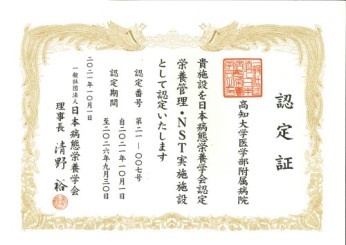 認定証
高知大学医学部附属病院
貴施設を日本病態栄養学会認定
栄養管理・NST実施施設
として認定いたします
認定番号 第二一-〇〇七号
認定期間 自二〇二一年一〇月一日
至二〇二六年九月三〇日
二〇二一年一〇月一日
一般社団法人日本病態栄養学会
理事長 清野 裕